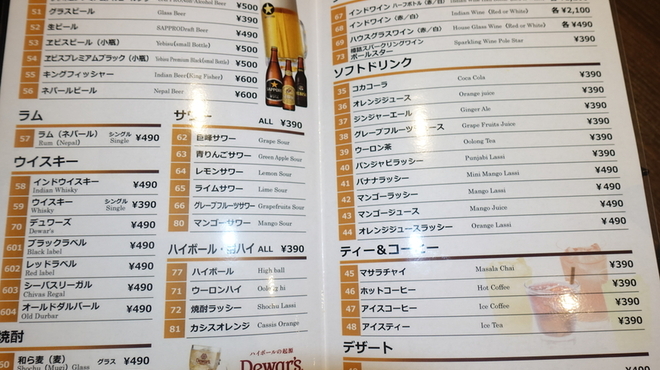 ¥500
51 グラスビール Glass Beer ¥390
52 生ビール SAPPRODraft Beer ¥500
53 ヱビスビール（小瓶） Yebisu(small Bottle) ¥500
54 ヱビスプレミアムブラック（小瓶） Yebisu Premium Black(small Bottle) ¥500
55 キングフィッシャー Indian Beer(King Fisher) ¥600
56 ネパールビール Nepal Beer ¥600
ラム
57 ラム（ネパール） シングル ¥490
Rum (Nepal) Single
ウイスキー
58 インドウイスキー ¥490
Indian Whisky
59 ウイスキー シングル ¥390
Whisky Single
70 デュワーズ ¥490
Dewar's
601 ブラックラベル ¥490
Black label
602 レッドラベル ¥490
Red label
603 シーバスリーガル ¥490
Chivas Regal
604 オールドダルバー ¥490
Old Durbar
焼酎
60 和ら麦（麦） グラス ¥490
Shochu (Mugi) Glass
サワー ALL ¥390
62 巨峰サワー Grape Sour
63 青りんごサワー Green Apple Sour
64 レモンサワー Lemon Sour
65 ライムサワー Lime Sour
66 グレープフルーツサワー Grapefruits Sour
80 マンゴーサワー Mango Sour
ハイボール・ ALL ¥390
77 ハイボール High ball
71 ウーロンハイ
72 焼酎ラッシー Shochu Lassi
81 カシスオレンジ Cassis Orange
ハイボールの起源
Dewar's
67 インドワイン ハーフボトル（赤／白）
68 インドワイン（赤／白） Indian Wine (Red or White) 各 ¥2,100
69 ハウスグラスワイン（赤／白） House Glass Wine (Red or White) 各 ¥490
73 樽詰スパークリングワイン Sparkling Wine Pole Star ¥390
ポールスター
ソフトドリンク
35 コカコーラ Coca Cola ¥390
36 オレンジジュース Orange juice ¥390
37 ジンジャーエール Ginger Ale ¥390
38 グレープフルーツジュース Grape Fruits Juice ¥390
39 ウーロン茶 Oolong Tea ¥390
40 パンジャビラッシー Punjabi Lassi ¥390
41 バナナラッシー Mini Mango Lassi ¥490
42 マンゴーラッシー Mango Lassi ¥490
43 マンゴージュース Mango Juice ¥490
44 オレンジジュースラッシー Orange Lassi ¥490
ティー＆コーヒー
45 マサラチャイ Masala Chai ¥390
46 ホットコーヒー Hot Coffee ¥390
47 アイスコーヒー Ice Coffee ¥390
48 アイスティー Ice Tea ¥390
デザート